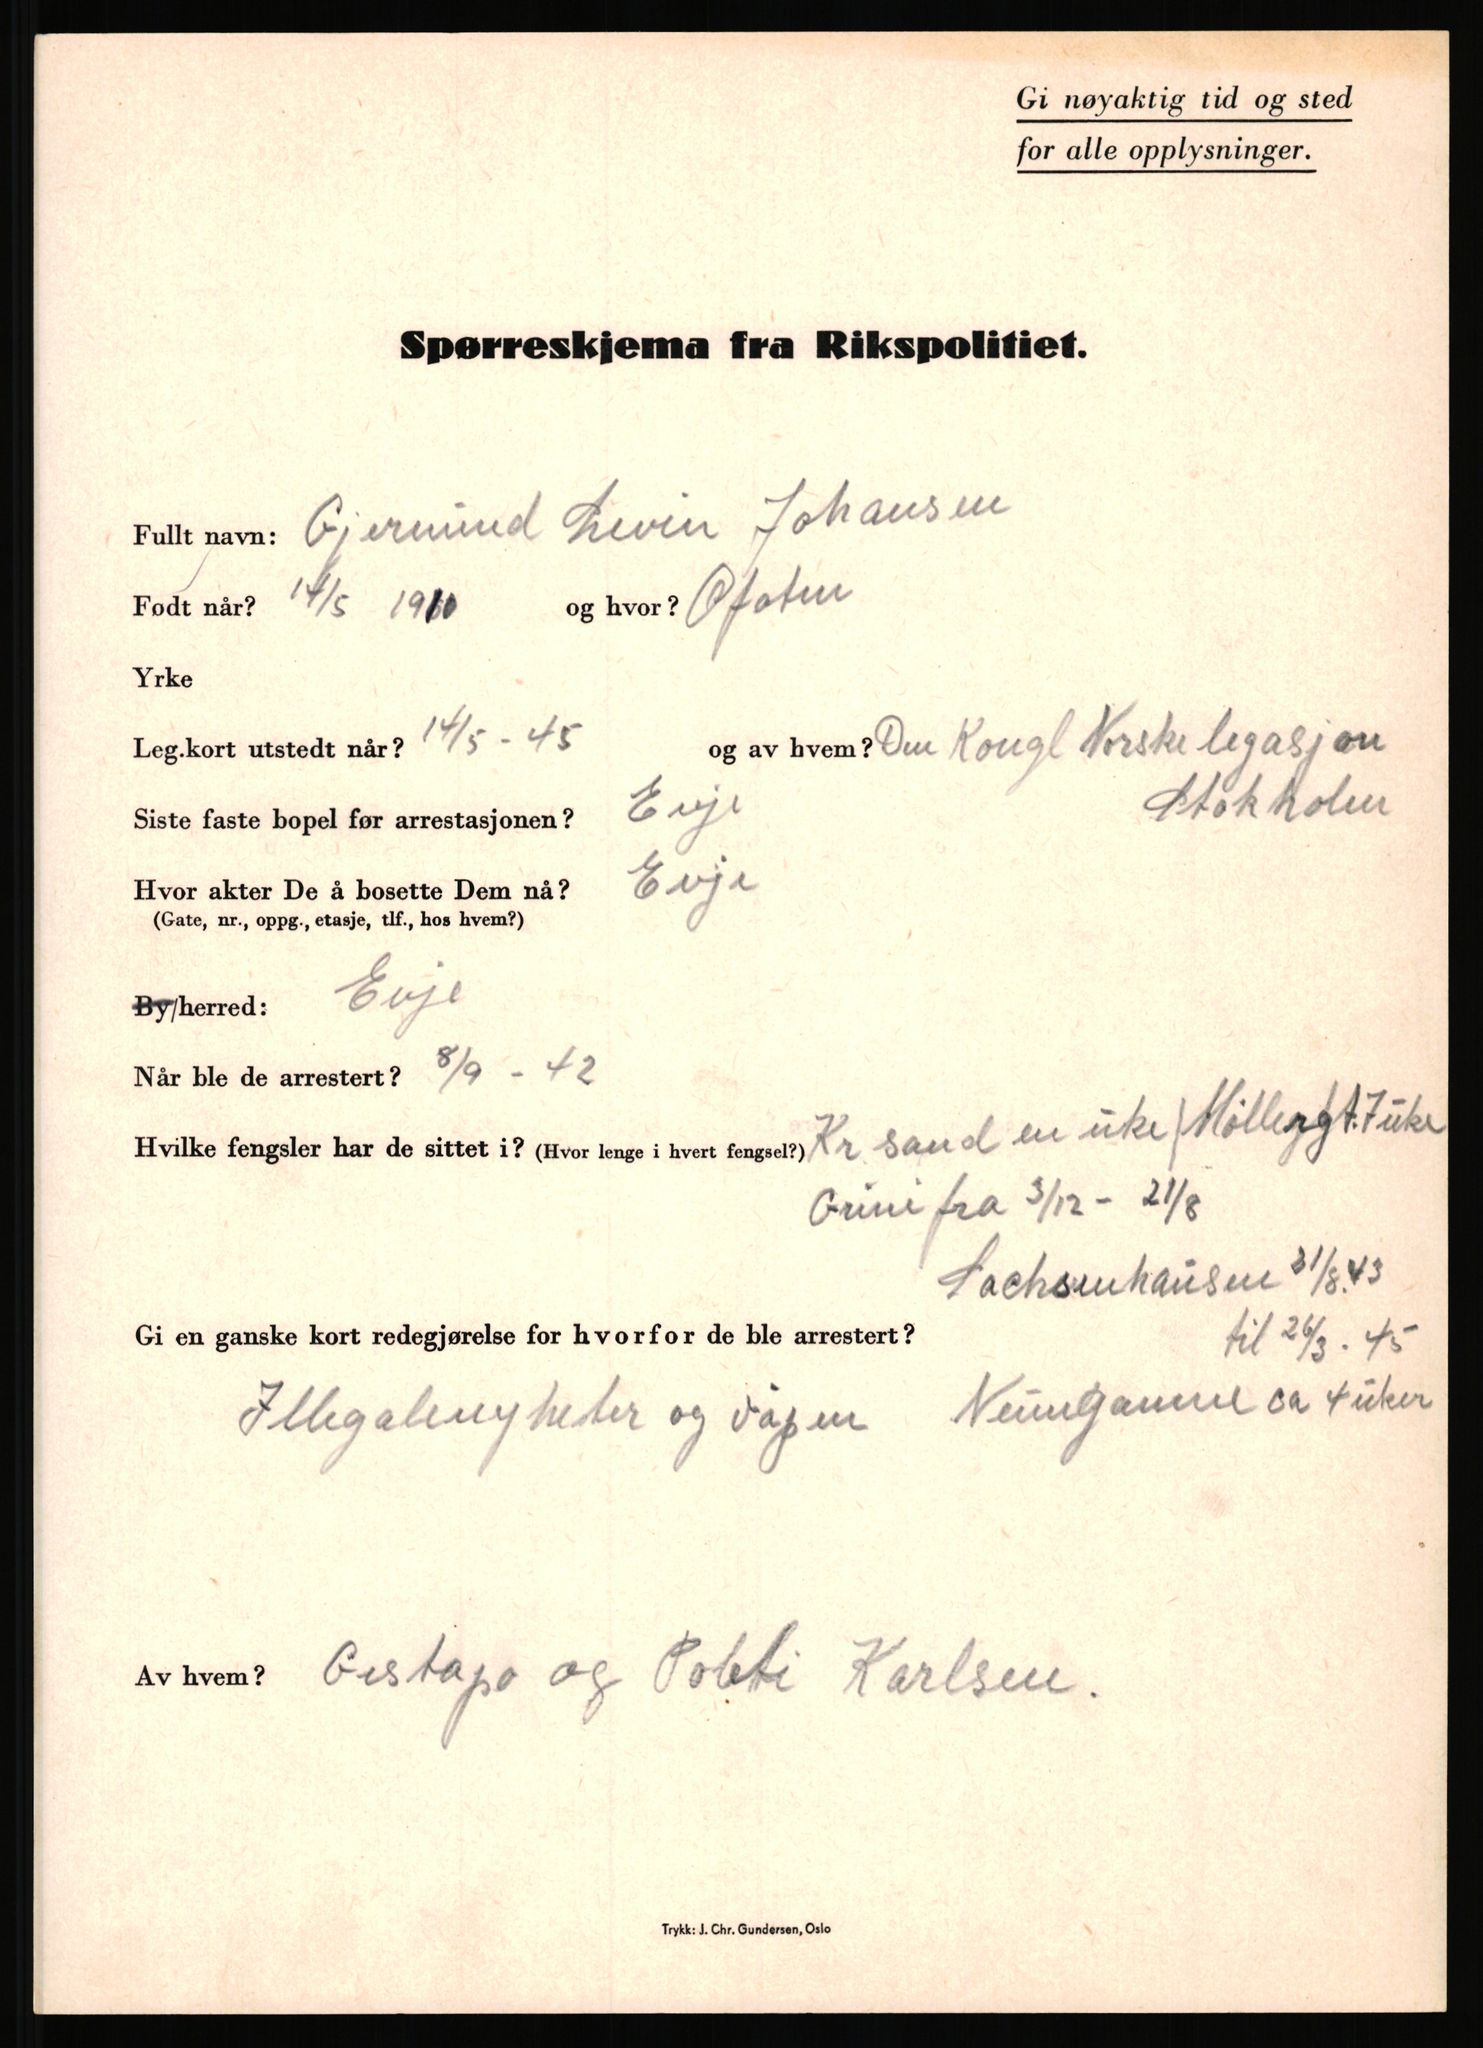 Gi nøyaktig tid og sted
for alle opplysninger.
Spørreskjema fra Rikspolitiet.
Fullt navn: Gjermund Levin Johansen
Født når? 14/5 1910 og hvor? Ofoten
Yrke
Leg.kort utstedt når? 14/5 - 45 og av hvem? Den Kongl Norske legasjon
Stokholm
Siste faste bopel før arrestasjonen? Evje
Hvor akter De å bosette Dem nå? Evje
(Gate, nr., oppg., etasje, tlf., hos hvem?)
By/herred: Evje
Når ble de arrestert? 8/9 - 42
Hvilke fengsler har de sittet i? (Hvor lenge i hvert fengsel?) Kr sand en uke / Möllergt. 7 uke
Grini fra 3/12 - 21/8
Sachsenhausen 31/8.43
Gi en ganske kort redegjørelse for hvorfor de ble arrestert? til 26/3. 45
Illegalenyheter og våpen Neungamme ca 4 uker
Av hvem? Gestapo og Politi Karlsen.
Trykk: J. Chr. Gundersen, Oslo